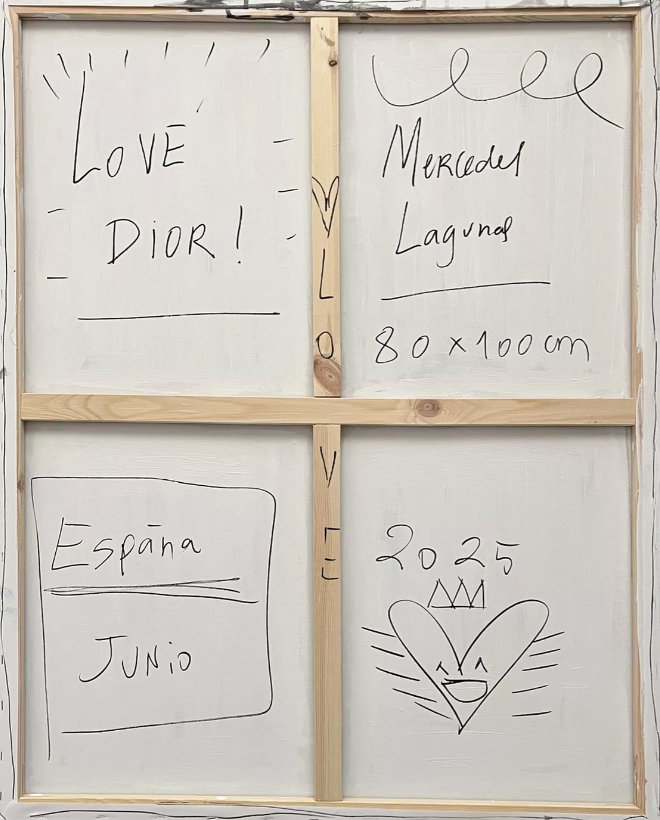 LOVE
DIOR!
Mercedes
Lagunas
80x100cm
LO
VE
España
JUNIO
2025